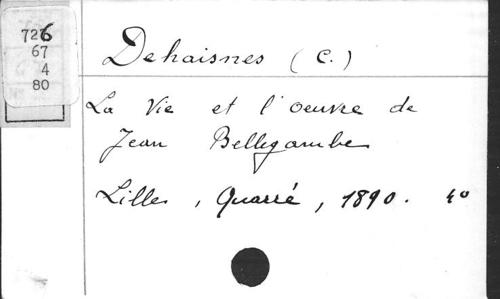 726
67
4
80
Dehaisnes (C.)
La Vie et l'oeuvre de
Jean Bellegambe
Lille, Quarré, 1890. 4º